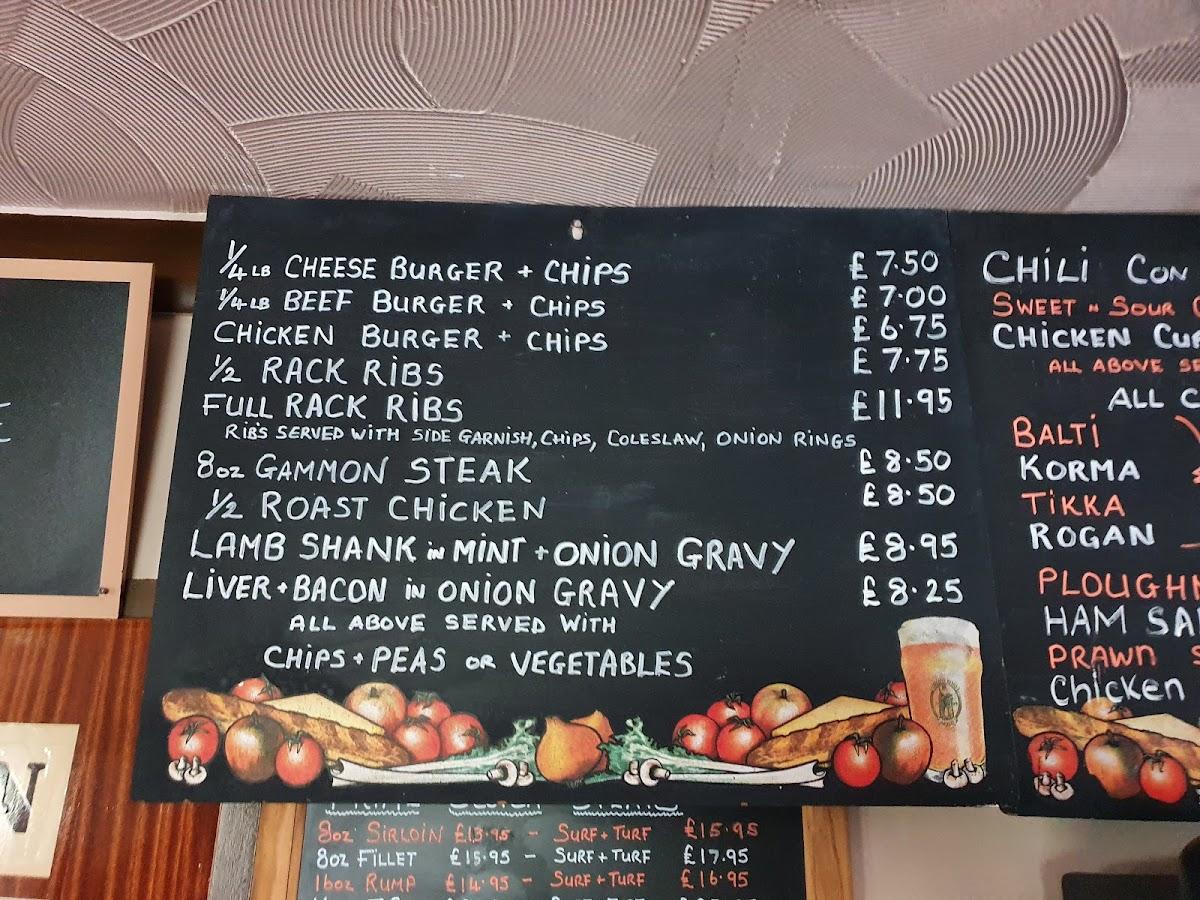 1/4 LB CHEESE BURGER + CHIPS £7.50
1/4 LB BEEF BURGER + CHIPS £7.00
CHICKEN BURGER + CHIPS £6.75
1/2 RACK RIBS £7.75
FULL RACK RIBS £11.95
RIBS SERVED WITH SIDE GARNISH, CHIPS, COLESLAW, ONION RINGS
8oz GAMMON STEAK £8.50
1/2 ROAST CHICKEN £8.50
LAMB SHANK in MINT + ONION GRAVY £8.95
LIVER + BACON in ONION GRAVY £8.25
ALL ABOVE SERVED WITH
CHIPS + PEAS OR VEGETABLES
CHILI CON
SWEET N SOUR
CHICKEN
ALL ABOVE
ALL
BALTI
KORMA
TIKKA
ROGAN
HAM
PRAWN
Chicken
8oz SIRLOIN £13.95 - SURF + TURF £15.95
8oz FILLET £15.95 - SURF + TURF £17.95
16oz RUMP £14.95 - SURF + TURF £16.95